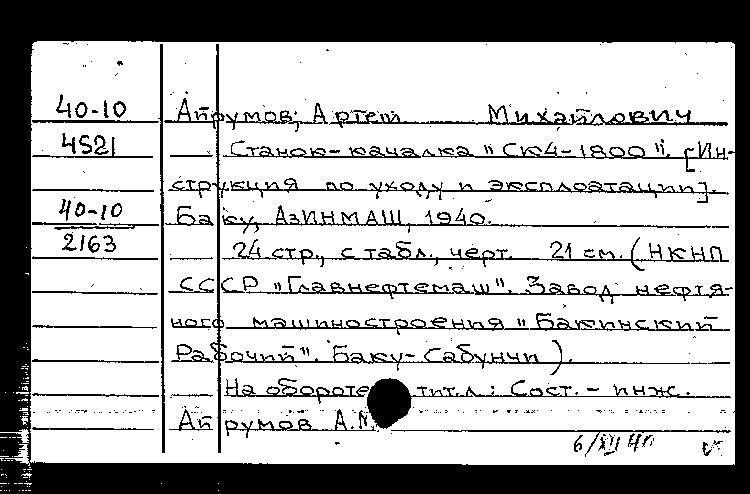 40-10 Айрумов, Артем Михайлович
4521 Станок-качалка "СК4-1800". [Ин-
струкция по уходу и эксплоатации].
40-10 Баку, АзИНМАШ, 1940.
2163 24 стр., с табл., черт. 21 см. (НКНП
СССР "Главнефтемаш". Завод нефтя-
ного машиностроения "Бакинский
Рабочий". Баку-Сабунчи).
На обороте тит.л.: Сост. - инж.
Айрумов А.М.
6/XII 40